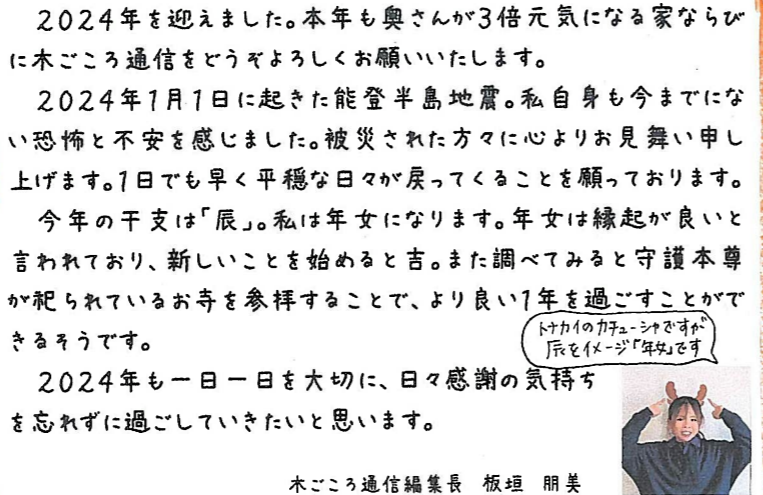 2024年を迎えました。本年も奥さんが3倍元気になる家ならび
に木ごころ通信をどうぞよろしくお願いいたします。
2024年1月1日に起きた能登半島地震。私自身も今までにな
い恐怖と不安を感じました。被災された方々に心よりお見舞い申し
上げます。1日でも早く平穏な日々が戻ってくることを願っております。
今年の干支は「辰」。私は年女になります。年女は縁起が良いと
言われており、新しいことを始めると吉。また調べてみると守護本尊
が祀られているお寺を参拝することで、より良い1年を過ごすことがで
きるそうです。
トナカイのカチューシャですが
辰をイメージ「年女」です
2024年も一日一日を大切に、日々感謝の気持ち
を忘れずに過ごしていきたいと思います。
木ごころ通信編集長 板垣 朋美